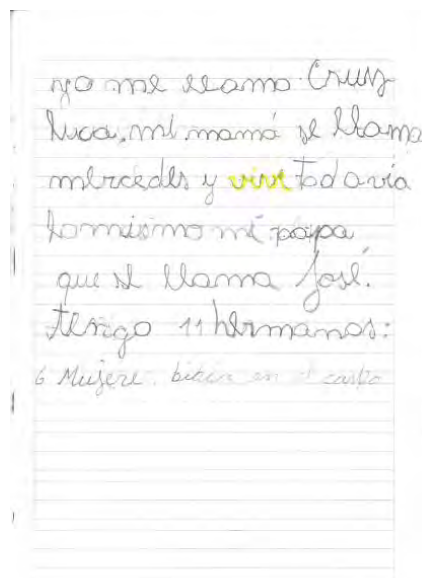 yo me llamo Cruz
Luca, mi mamá se llama
mercedes y vive todavía
lo mismo mi papa
que se llama José.
tengo 11 hermanos:
6 Mujere. biben en el